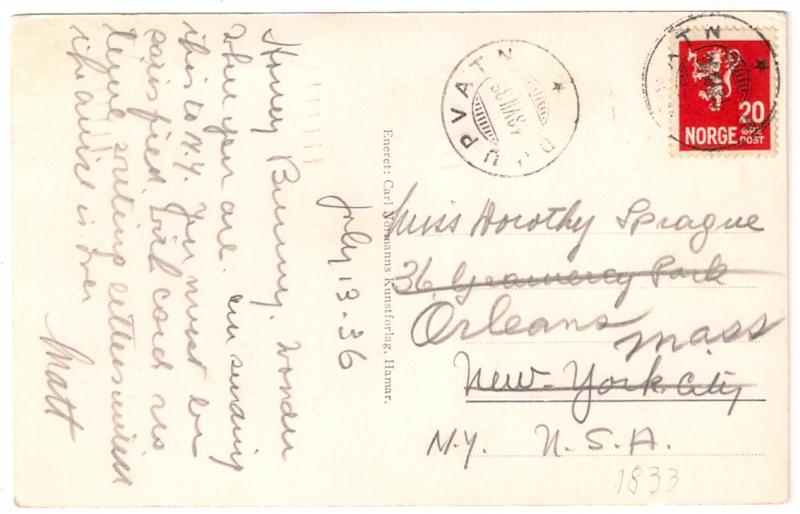 Honey Bunny. Wonder
where you are. Am sending
this to N.Y. You must be
satisfied with card no
letter writing until
the cruise is over
Matt
July 13-36
Eneret: Carl Normanns Kunstforlag, Hamar.
DJUPVATN
13 VII 36
NORGE
20
ØRE
POST
Miss Dorothy Sprague
36 Gramercy Park
Orleans Mass
New York City
N.Y. U.S.A.
1833